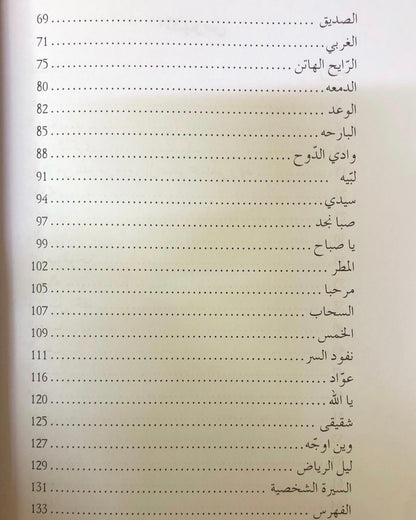 الصديق ........ 69
الغربي ........ 71
الرّايح الهاتن ........ 75
الدمعه ........ 80
الوعد ........ 82
البارحه ........ 85
وادي الدّوح ........ 88
لبّيه ........ 91
سيدي ........ 94
صبا نجد ........ 97
يا صباح ........ 99
المطر ........ 102
مرحبا ........ 105
السحاب ........ 107
الخمس ........ 109
نفود السر ........ 111
عوّاد ........ 116
يا الله ........ 120
شقيقى ........ 125
وين اوجّه ........ 127
ليل الرياض ........ 129
السيرة الشخصية ........ 131
الفهرس ........ 133